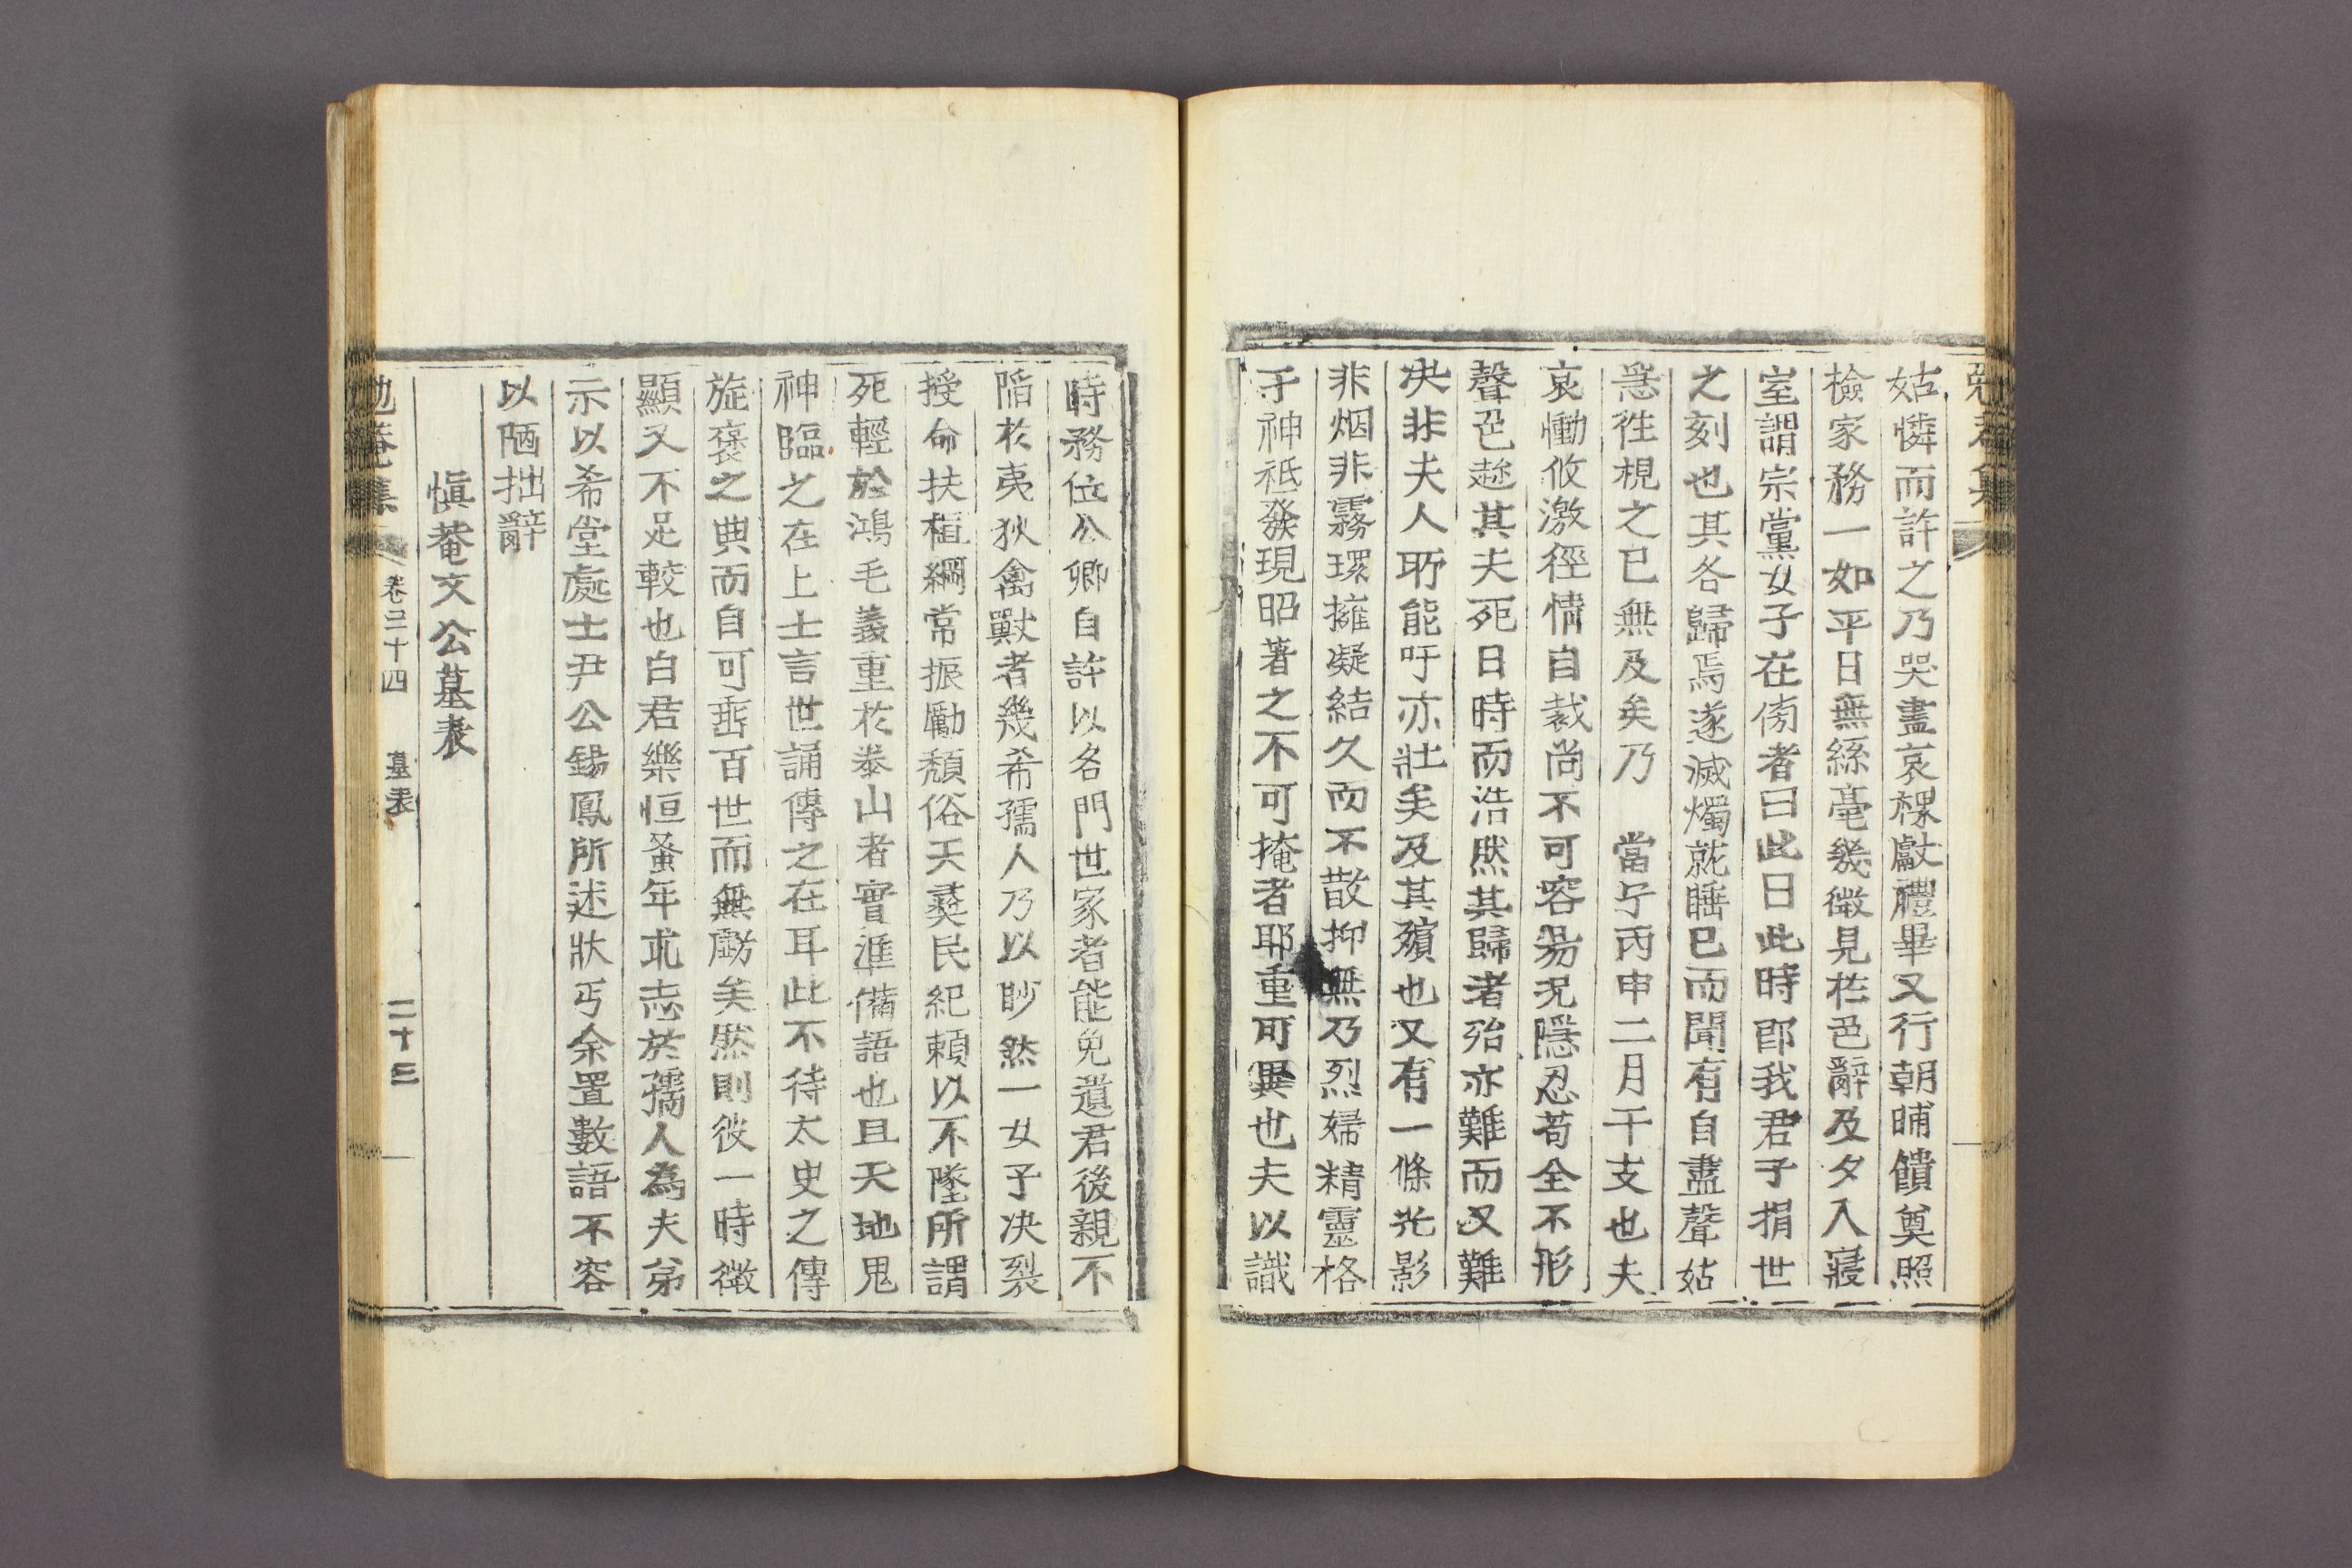 姑憐而許之乃哭盡哀祼獻禮畢又行朝晡饋奠照
檢家務一如平日無絲毫幾微見於色辭及夕入寢
室謂宗黨女子在傍者曰此日此時卽我君子捐世
之刻也其各歸焉遂滅燭就睡已而聞有自盡聲姑
急徃視之已無及矣乃 當宁丙申二月干支也夫
哀慟攸激徑情自裁尚不可容易況隱忍苟全不形
聲色趂其夫死日時而浩然其歸渚殆亦難而又難
决非夫人所能吁亦壯矣及其殯也又有一條光影
非烟非霧環擁凝結久而不散抑無乃烈婦精靈格
于神祇發現昭著之不可掩者耶重可異也夫以識
時務位公卿自許以名門世家者能免遺君後親不
陷於夷狄禽獸者幾希孺人乃以眇然一女子决裂
授命扶植綱常振勵頹俗天彛民紀頼以不墜所謂
死輕於鴻毛義重於泰山者實進備語也且天地鬼
神臨之在上士言世誦傳之在耳此不待太史之傳
旋褒之典而自可垂百世而無虧矣然則彼一時微
顯又不足較也白君樂恒蚤年求志於孺人為夫弟
示以希堂處士尹公錫鳳所述狀丐余置數語不容
以陋拙辭
愼菴文公墓表
卷三十四 墓表 二十三